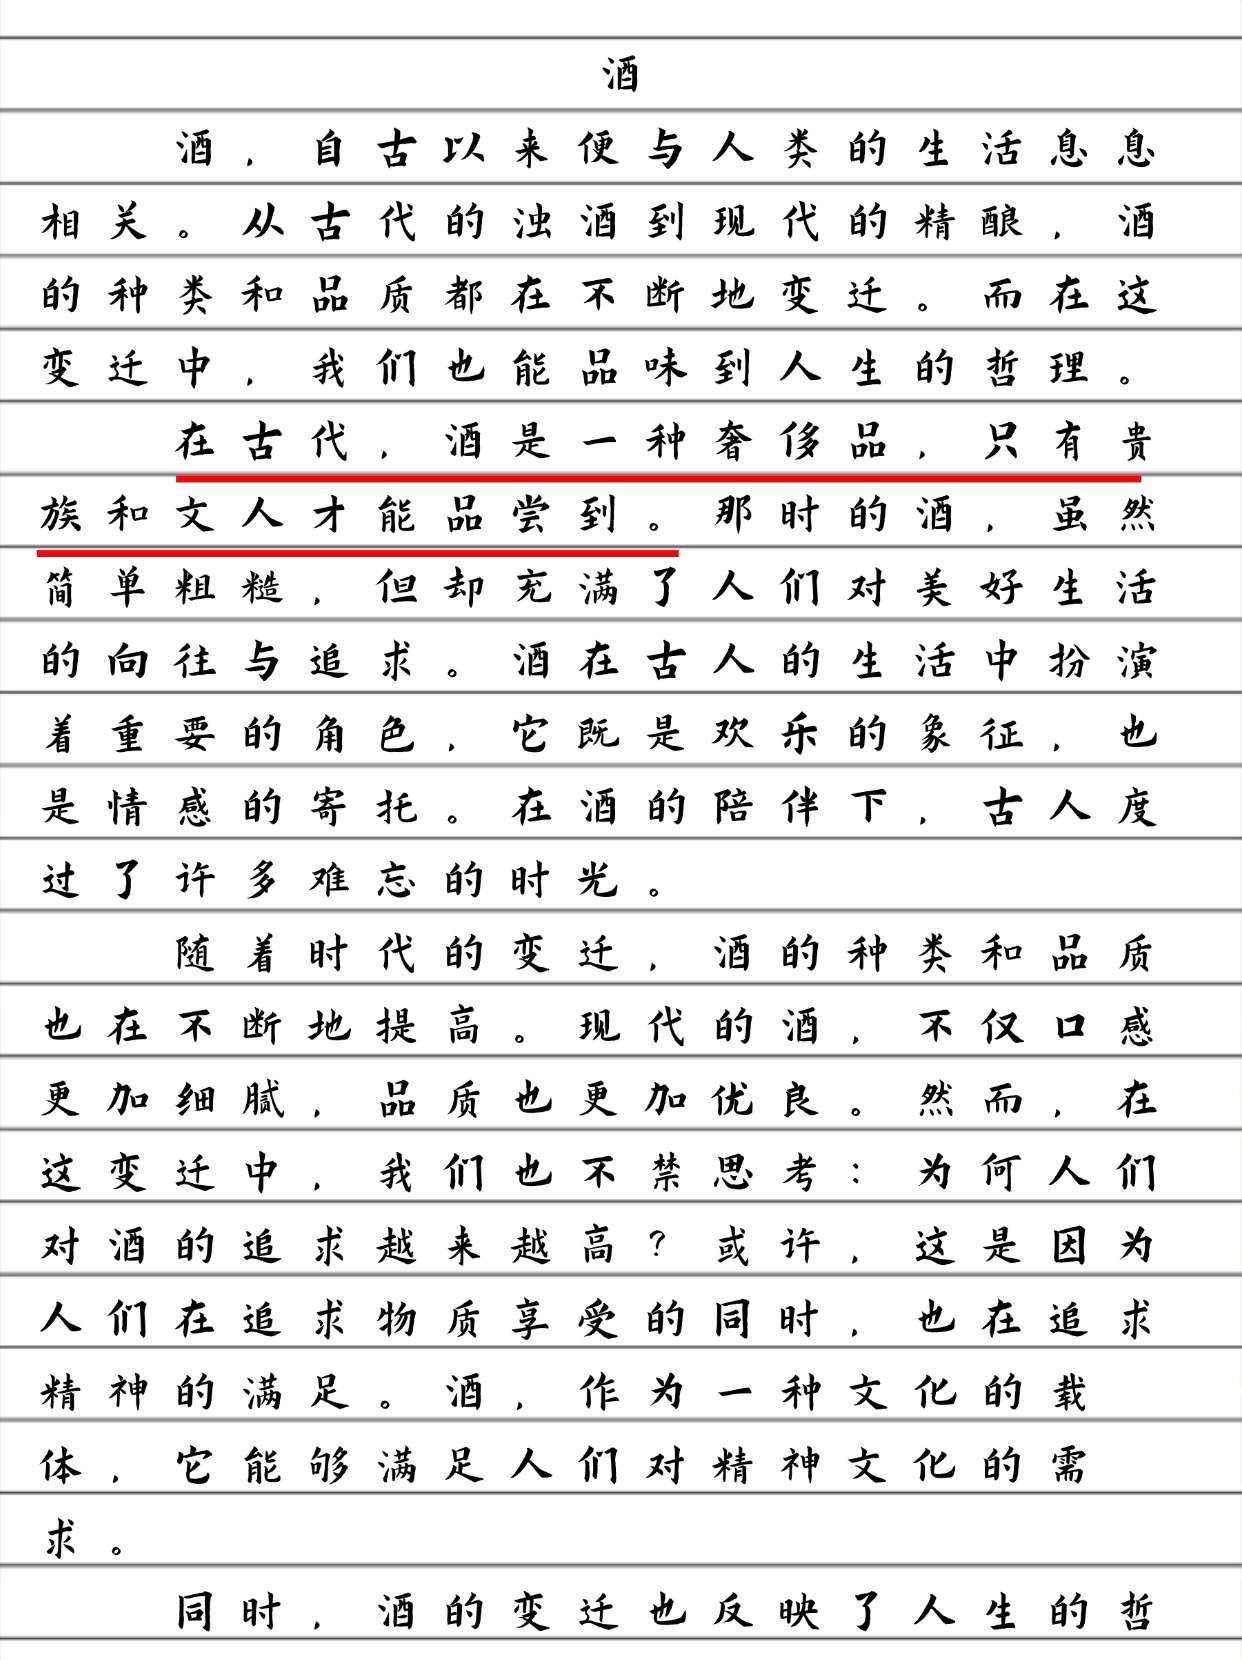 酒
酒，自古以来便与人类的生活息息
相关。从古代的浊酒到现代的精酿，酒
的种类和品质都在不断地变迁。而在这
变迁中，我们也能品味到人生的哲理。
在古代，酒是一种奢侈品，只有贵
族和文人才能品尝到。那时的酒，虽然
简单粗糙，但却充满了人们对美好生活
的向往与追求。酒在古人的生活中扮演
着重要的角色，它既是欢乐的象征，也
是情感的寄托。在酒的陪伴下，古人度
过了许多难忘的时光。
随着时代的变迁，酒的种类和品质
也在不断地提高。现代的酒，不仅口感
更加细腻，品质也更加优良。然而，在
这变迁中，我们也不禁思考：为何人们
对酒的追求越来越高？或许，这是因为
人们在追求物质享受的同时，也在追求
精神的满足。酒，作为一种文化的载
体，它能够满足人们对精神文化的需
求。
同时，酒的变迁也反映了人生的哲